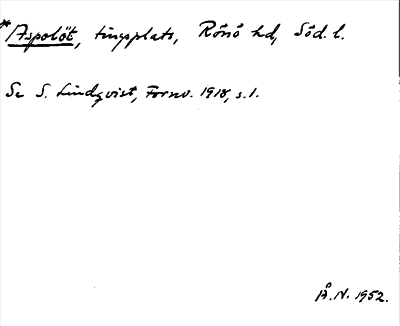 *Aspolöt, tingsplats, Rönö hd, Söd. l.
Se S. Lindqvist, Fornv. 1918, s. 1.
Å. N. 1952.